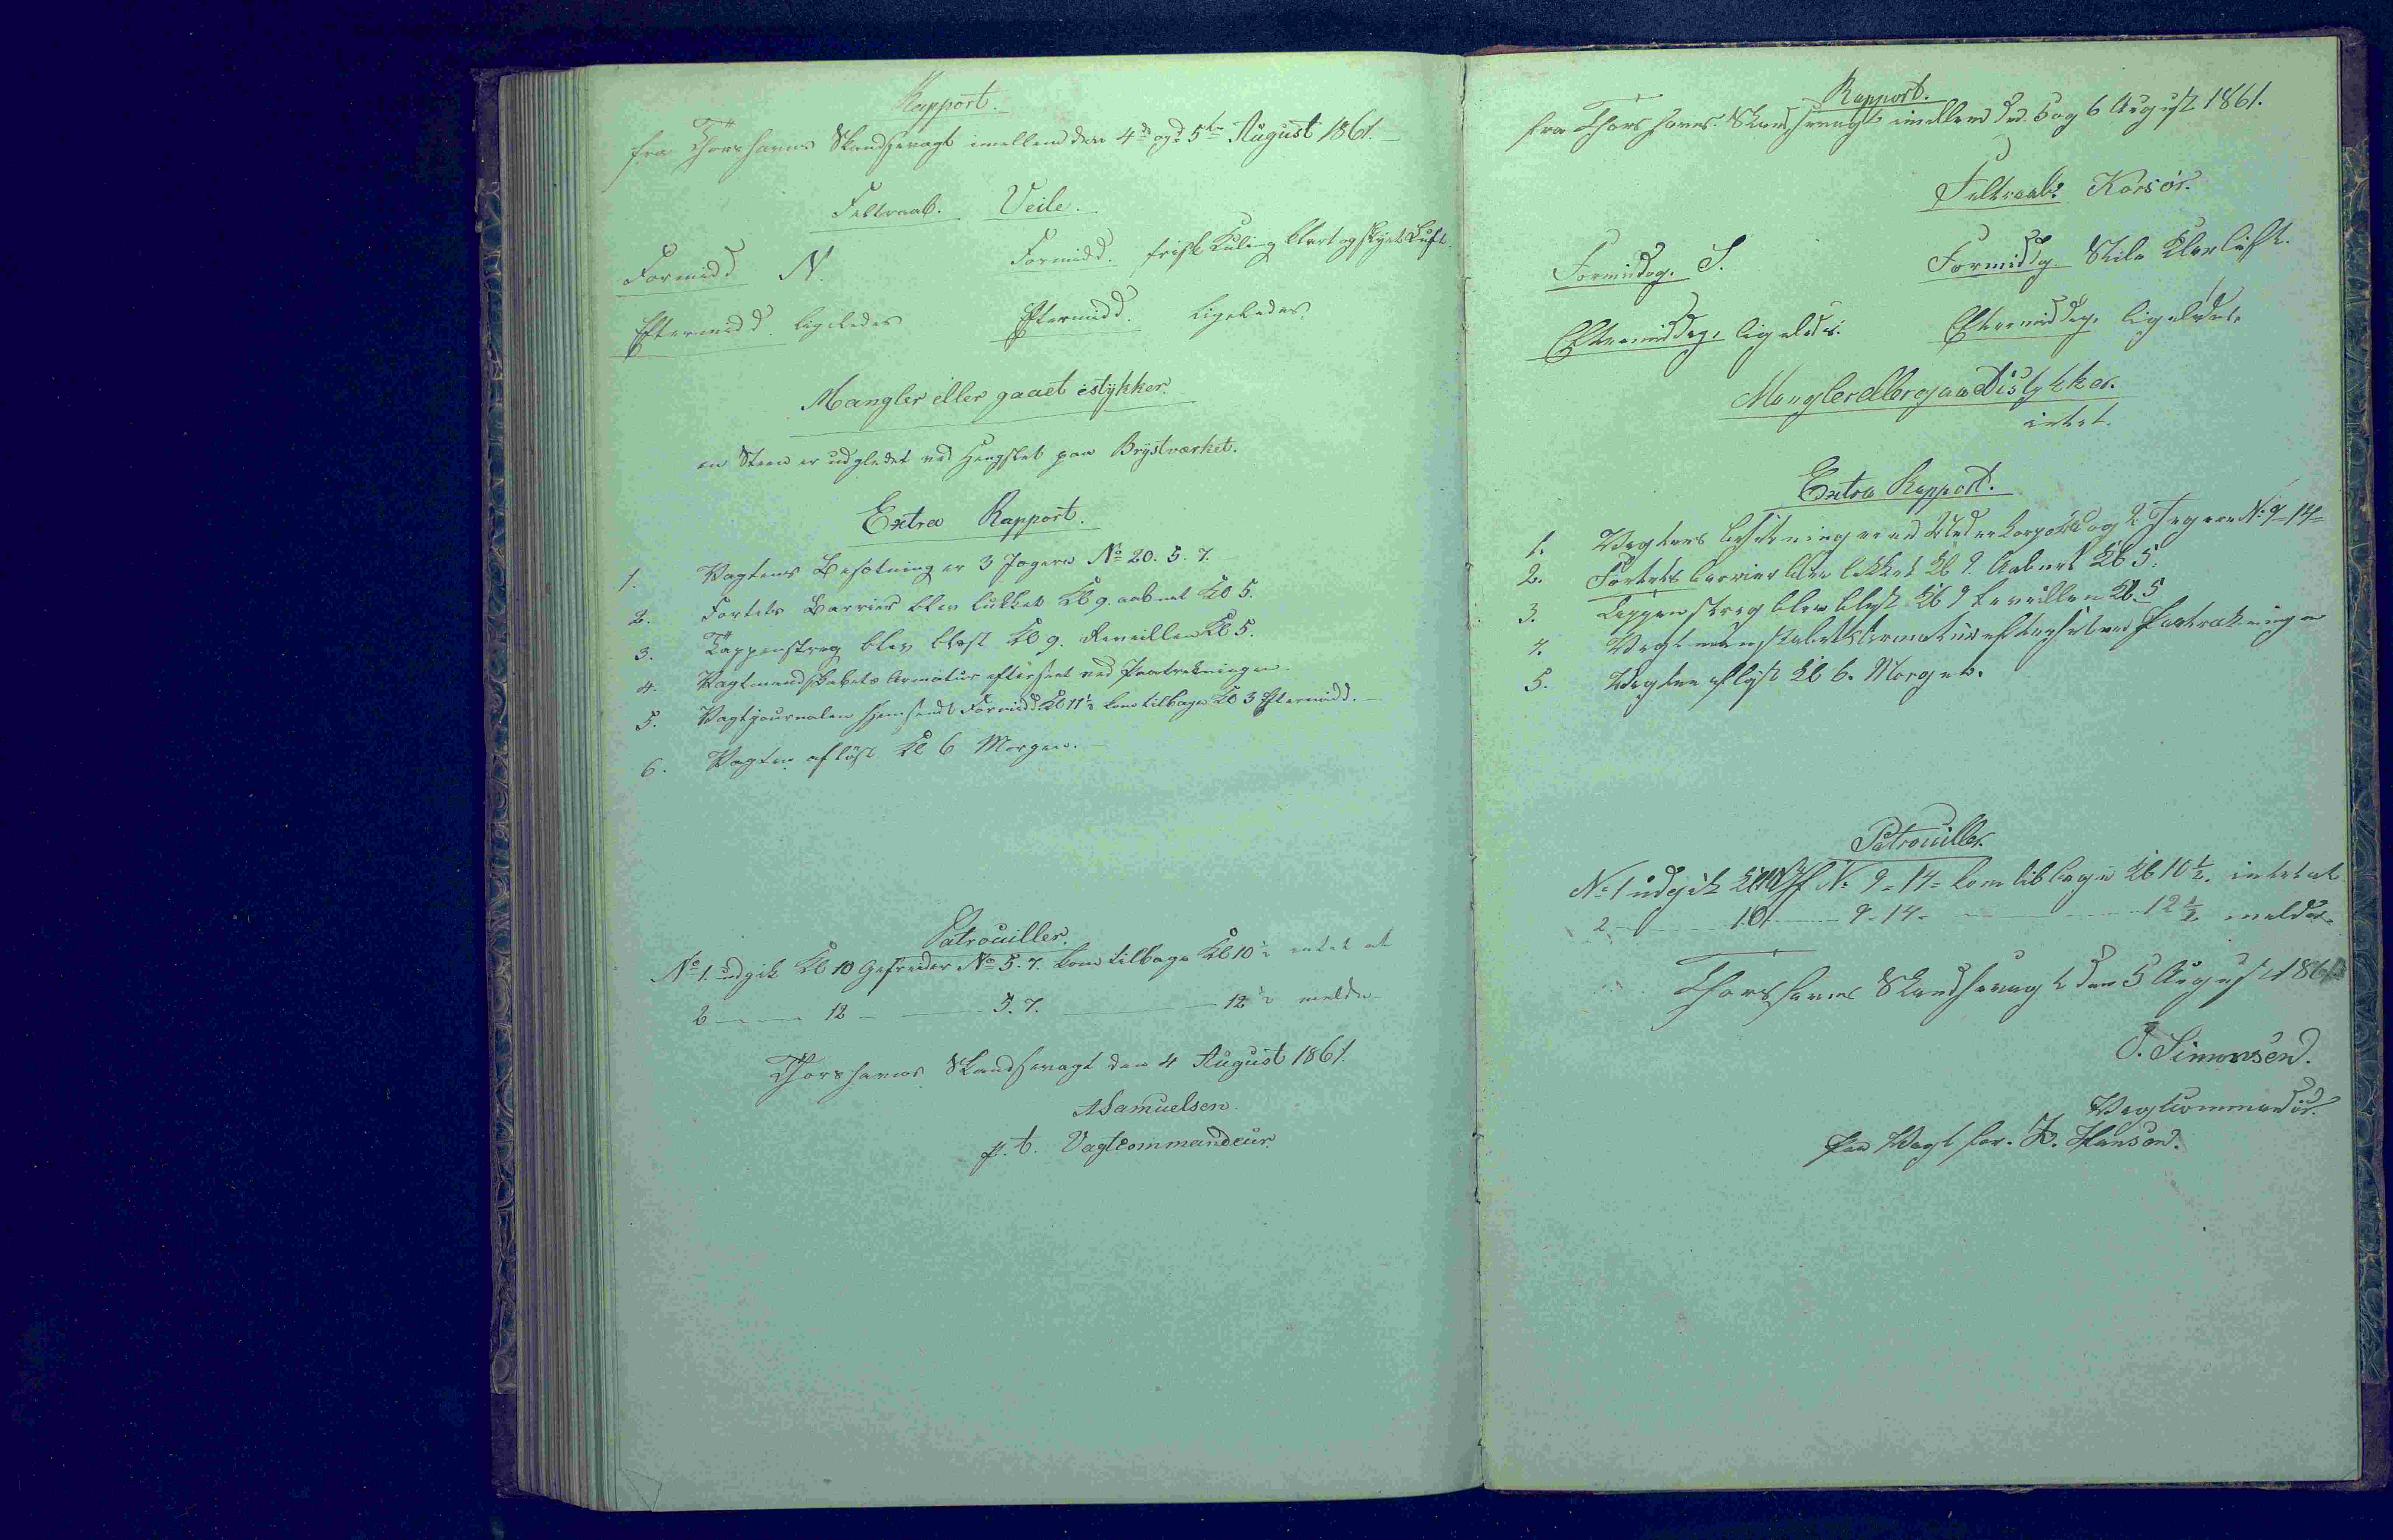 Rapport.
fra Thorshavns Skandsevagt imellem den 4de og 5te August 1861.
Feltraab. Veile.
Formidd N. Formidd. frisk Kuling klart og skyet Luft
Eftermidd. ligeledes Eftermidd. ligeledes.
Mangler eller gaaet istykker.
en Steen er udgledet ved Hengslet paa Brystværket.
Extra Rapport.
1. Vagtens Besætning er 3 Jægere No 20. 5. 7.
2. Fortets Barrier blev lukket Kl 9. aabnet Kl 5.
3. Tappenstreg blev blæst Kl 9. Reveillen Kl 5.
4. Vagtmandskabets Armatur efterseet ved Paatrækningen.
5. Vagtjournalen hjemsendt Formidd. Kl 11½ kom tilbage Kl 3 Eftermidd.
6. Vagten afløst Kl 6 Morgen.
Patrouiller.
No 1. udgik Kl 10 Gefreider No 5. 7. kom tilbage Kl 10½ intet at
2 — 12 — 5. 7. — 12½ melde
Thorshavns Skandsevagt den 4 August 1861.
A Samuelsen.
p. t. Vagtcommandeur.
Rapport.
fra Thorshavns Skandsevagt imellem den 5 og 6 August 1861.
Feltraab: Korsør.
Formiddag. S. Formiddg. Stile Klar luft.
Eftermiddag, ligeledes. Eftermiddag, ligeledes.
Mangler eller gaaedt istykker.
intet.
Extra Rapport.
1. Vagtens besætning er en Underkorporal og 2 Jægere No 9 - 14 -
2. Fortets barrier blev lukket Kl 9. Aabnet Kl 5.
3. Tappenstreg blev blæst Kl 9 Reveillen Kl. 5
4. Vagtmanskabets Armatur efterset ved Paatrækningen
5. Vagten afløst Kl 6. Morgen.
Patrouiller.
No 1 udgik Kl 10 Gf No 9 - 14 - kom tilbage Kl 10½. intet at
2 — — 9 - 14 - — 12½ melde.
Thorshavns Skandsevagt den 5 August 1861
J. Simonsen.
Vagtcommandør.
paa Vagt for. H. Hansen.